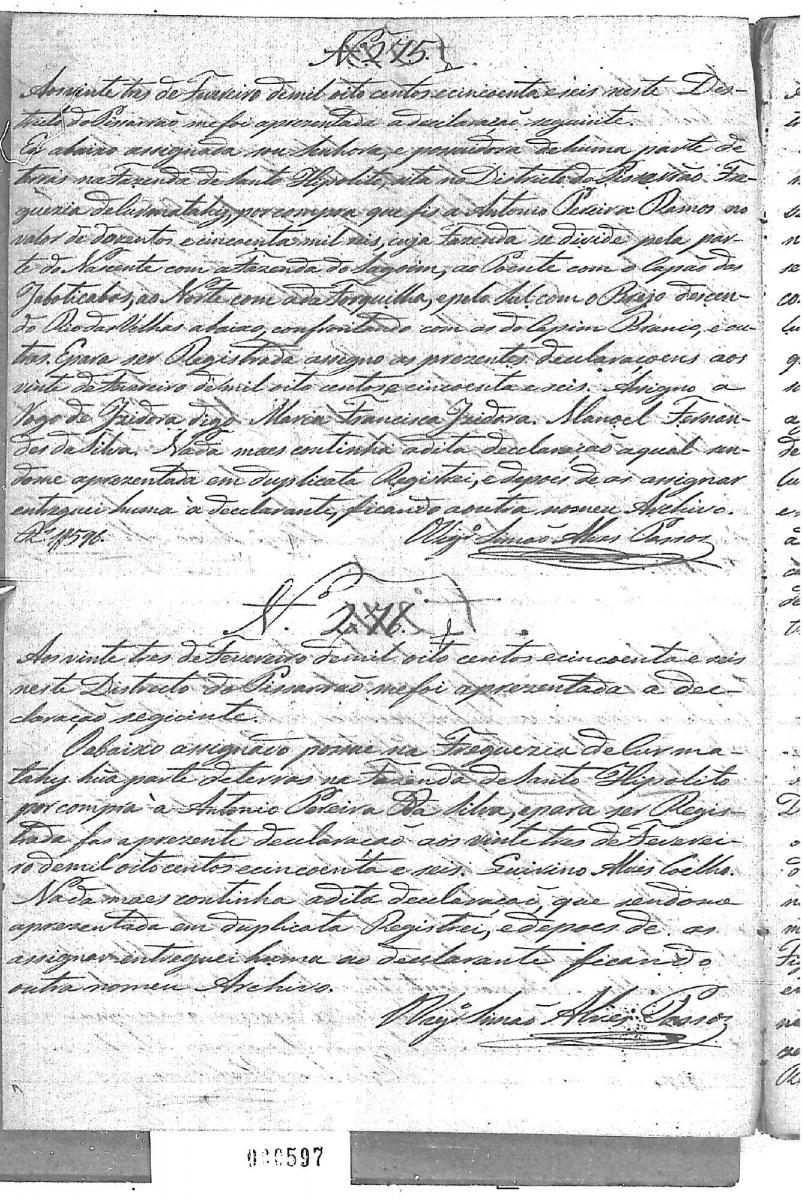 N. 275.
Aos vinte tres de Fevereiro de mil oito centos e cincoenta e seis neste Dis-
tricto do Pissarrão me foi aprezentada a declaração seguinte.
Eu abaixo assignada sou Senhora, e possuidora de huma parte de
terras na Fazenda de Santo Hipolito, sita no Districto do Pissarrão Fre-
guezia de Curmatahy, por compra que fis a Antonio Pereira Ramos no
valor de dozentos e cincoenta mil reis, cuja Fazenda se divide pela par-
te do Nascente com a Fazenda do , ao Poente com o Capão das
Jaboticabas, ao Norte com a da Forquilha, e pelo Sul com o Brejo descen-
do Rio das Velhas abaixo, confrontando com as do Capim Branco, e ou-
tras. E para ser Registrada assigno as prezentes declaraçoens aos
vinte de Fevereiro de mil oito centos e cincoenta e seis. Asigno a
rogo de Izidora digo Maria Francisca Izidora. Manoel Fernan-
des da Silva. Nada maes continha a dita declaração a qual sen-
dome aprezentada em duplicata Registrei, e depoes de as assignar
entreguei huma à declarante, ficando a outra no meu Archivo.
Vigrº Simão Alves Passos
N. 276.
Aos vinte tres de Fevereiro de mil oito centos e cincoenta e seis
neste Districto do Pissarrão me foi aprezentada a dec-
laração seguinte.
O abaixo assignado possue na Freguezia de Curma-
tahy hũa parte de terras na Fazenda de Santo Hipolito
por compra à Antonio Pereira da Silva, e para ser Regis-
trada fas a prezente declaração aos vinte tres de Feverei-
ro de mil oito centos e cincoenta e seis. Quirino Alves Coelho.
Nada maes continha a dita declaração, que sendome
aprezentada em duplicata Registrei, e depoes de as
assignar entreguei huma ao declarante ficando
outra no meu Archivo.
Vigrº Simão Alves Passos
000597